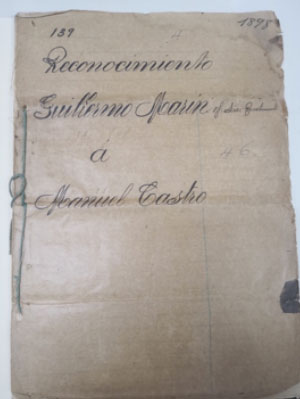 139 4 1898
Reconocimiento
Guillermo Marin
á 46
Manuel Castro